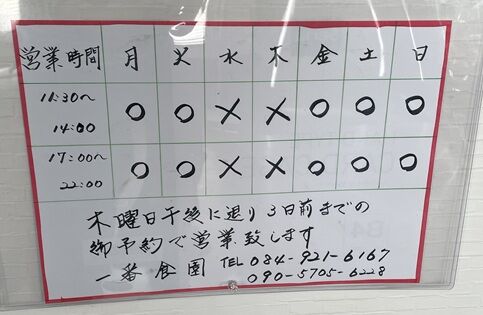 営業時間 月 火 水 木 金 土 日
11:30〜 14:00 ○ ○ × × ○ ○ ○
17:00〜 22:00 ○ ○ × × ○ ○ ○
木曜日午後に限り3日前までの
御予約で営業致します
一番食園 TEL 084-921-6167
090-5705-6228